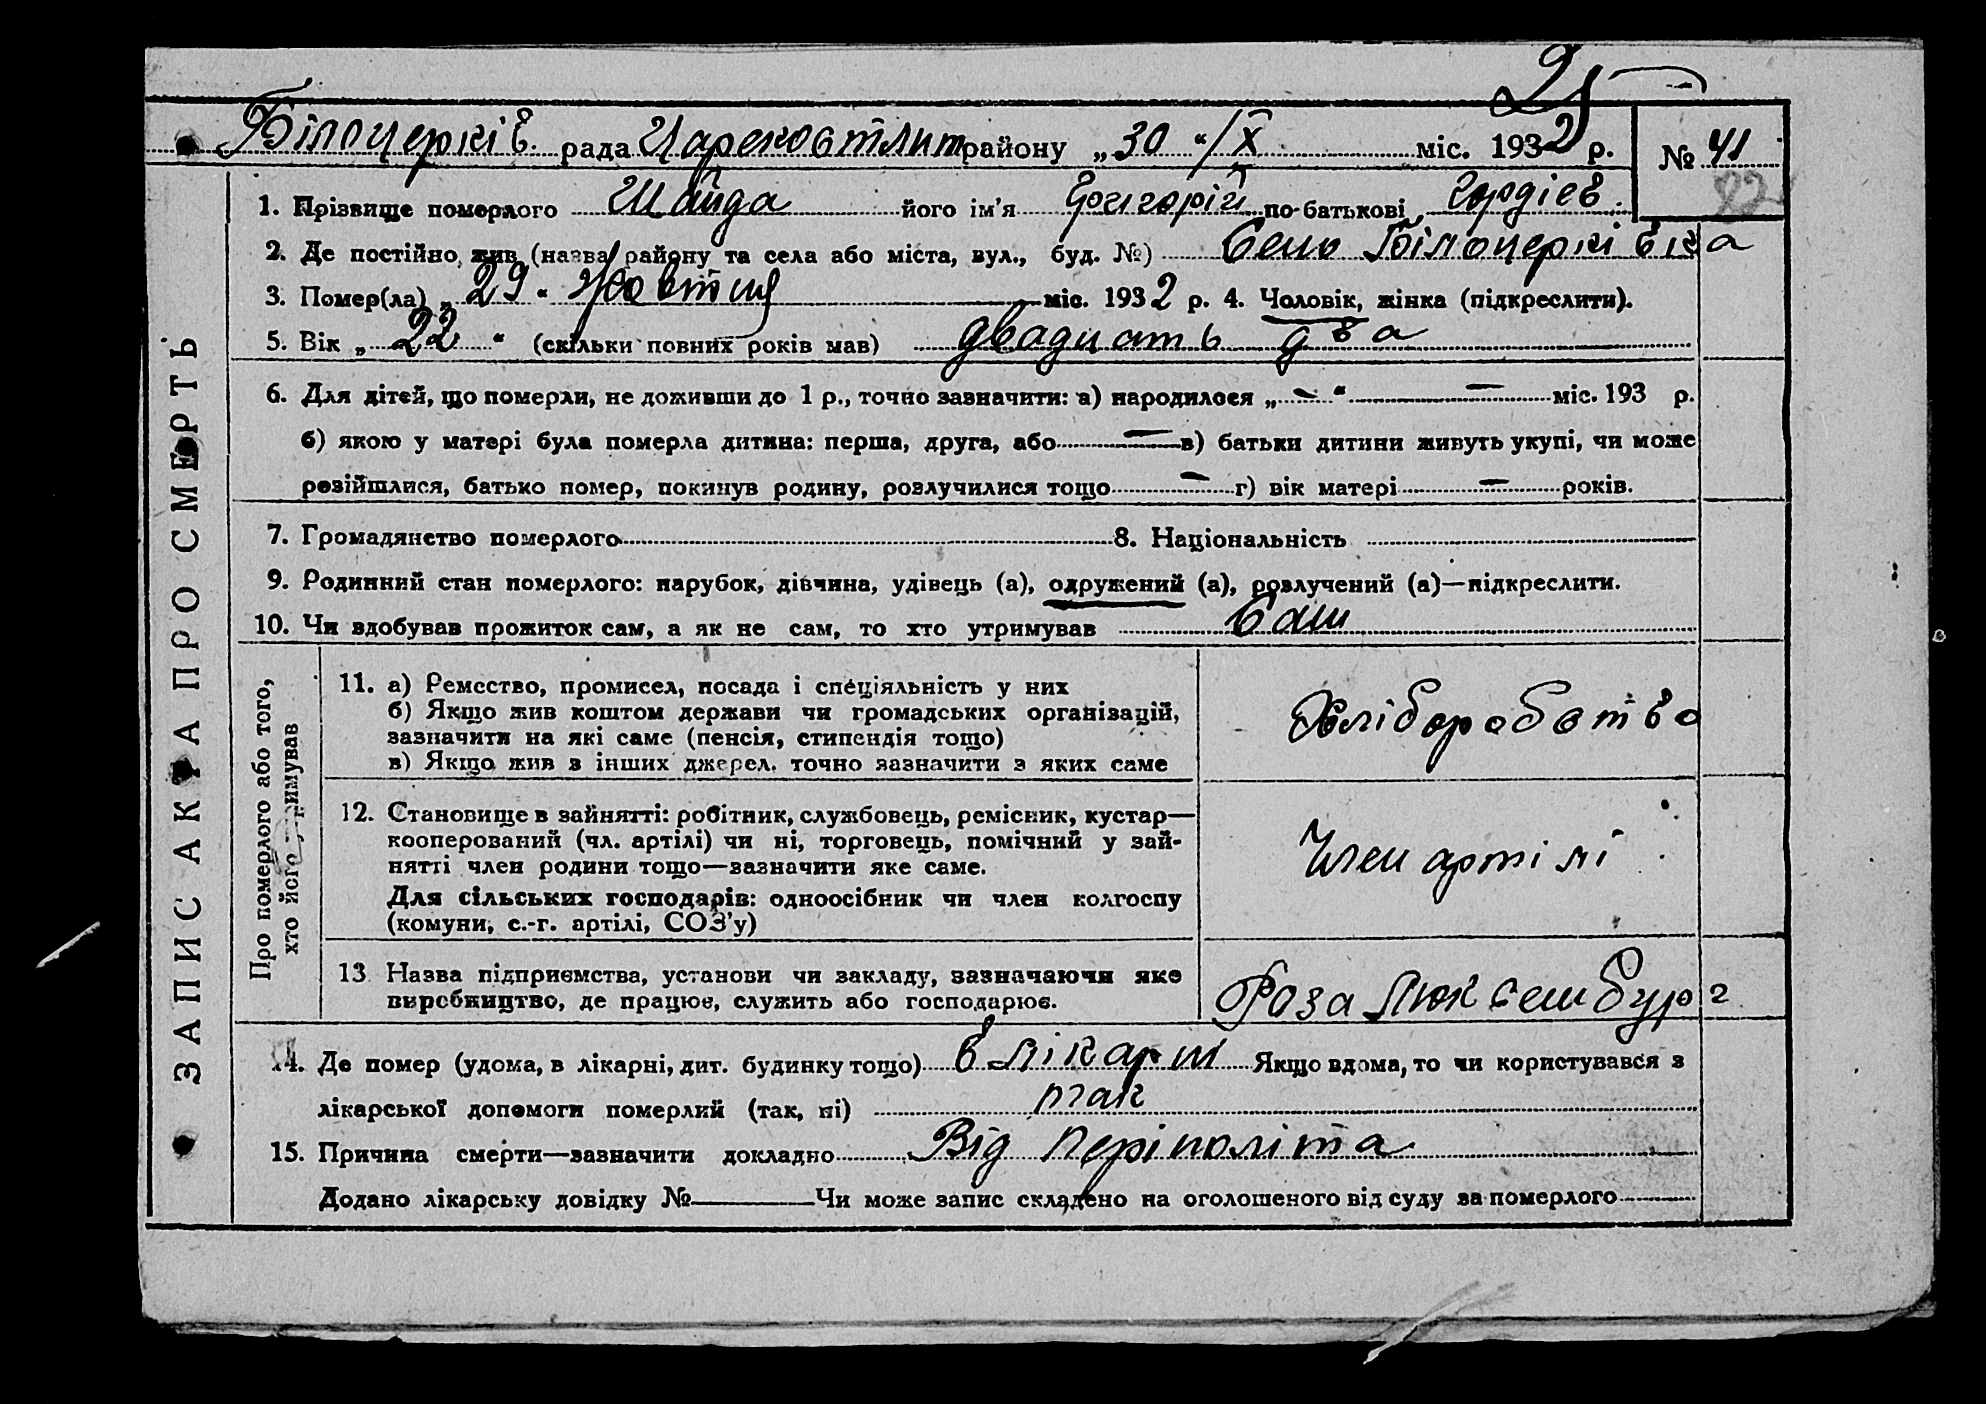 25
Білоцерків. рада Царекостянт району „30“/X міс. 1932 р. № 41
22
1. Прізвище померлого Шайда його ім'я Григорій по-батькові Гордіев.
2. Де постійно жив (назва району та села або міста, вул., буд. №) Село Білоцерківка
3. Помер(ла) „29“ Жовтня міс. 1932 р. 4. Чоловік, жінка (підкреслити).
5. Вік „22“ (скільки повних років мав) двадцать два
6. Для дітей, що померли, не доживши до 1 р., точно зазначити: а) народилося „—“ — міс. 193 р.
б) якою у матері була померла дитина: перша, друга, або — в) батьки дитини живуть укупі, чи може
розійшлися, батько помер, покинув родину, розлучилися тощо — г) вік матері — років.
7. Громадянство померлого 8. Національність
9. Родинний стан померлого: парубок, дівчина, удівець (а), одружений (а), розлучений (а)—підкреслити.
10. Чи здобував прожиток сам, а як не сам, то хто утримував Сам
ЗАПИС АКТА ПРО СМЕРТЬ
Про померлого або того,
хто його утримував
11. а) Ремество, промисел, посада і спеціяльність у них
б) Якщо жив коштом держави чи громадських організацій,
зазначити на які саме (пенсія, стипендія тощо)
в) Якщо жив з інших джерел, точно зазначити з яких саме
Хліборобство
12. Становище в зайнятті: робітник, службовець, ремісник, кустар—
кооперований (чл. артілі) чи ні, торговець, помічний у зай-
нятті член родини тощо—зазначити яке саме.
Для сільських господарів: одноосібник чи член колгоспу
(комуни, с.-г. артілі, СОЗ'у)
Член артілі
13 Назва підприємства, установи чи закладу, зазначаючи яке
виробництво, де працює, служить або господарює.
Роза Люксембург
14. Де помер (удома, в лікарні, дит. будинку тощо) в лікарні Якщо вдома, то чи користувався з
лікарської допомоги померлий (так, ні) так
15. Причина смерти—зазначити докладно Від періполіта
Додано лікарську довідку № — Чи може запис складено на оголошеного від суду за померлого